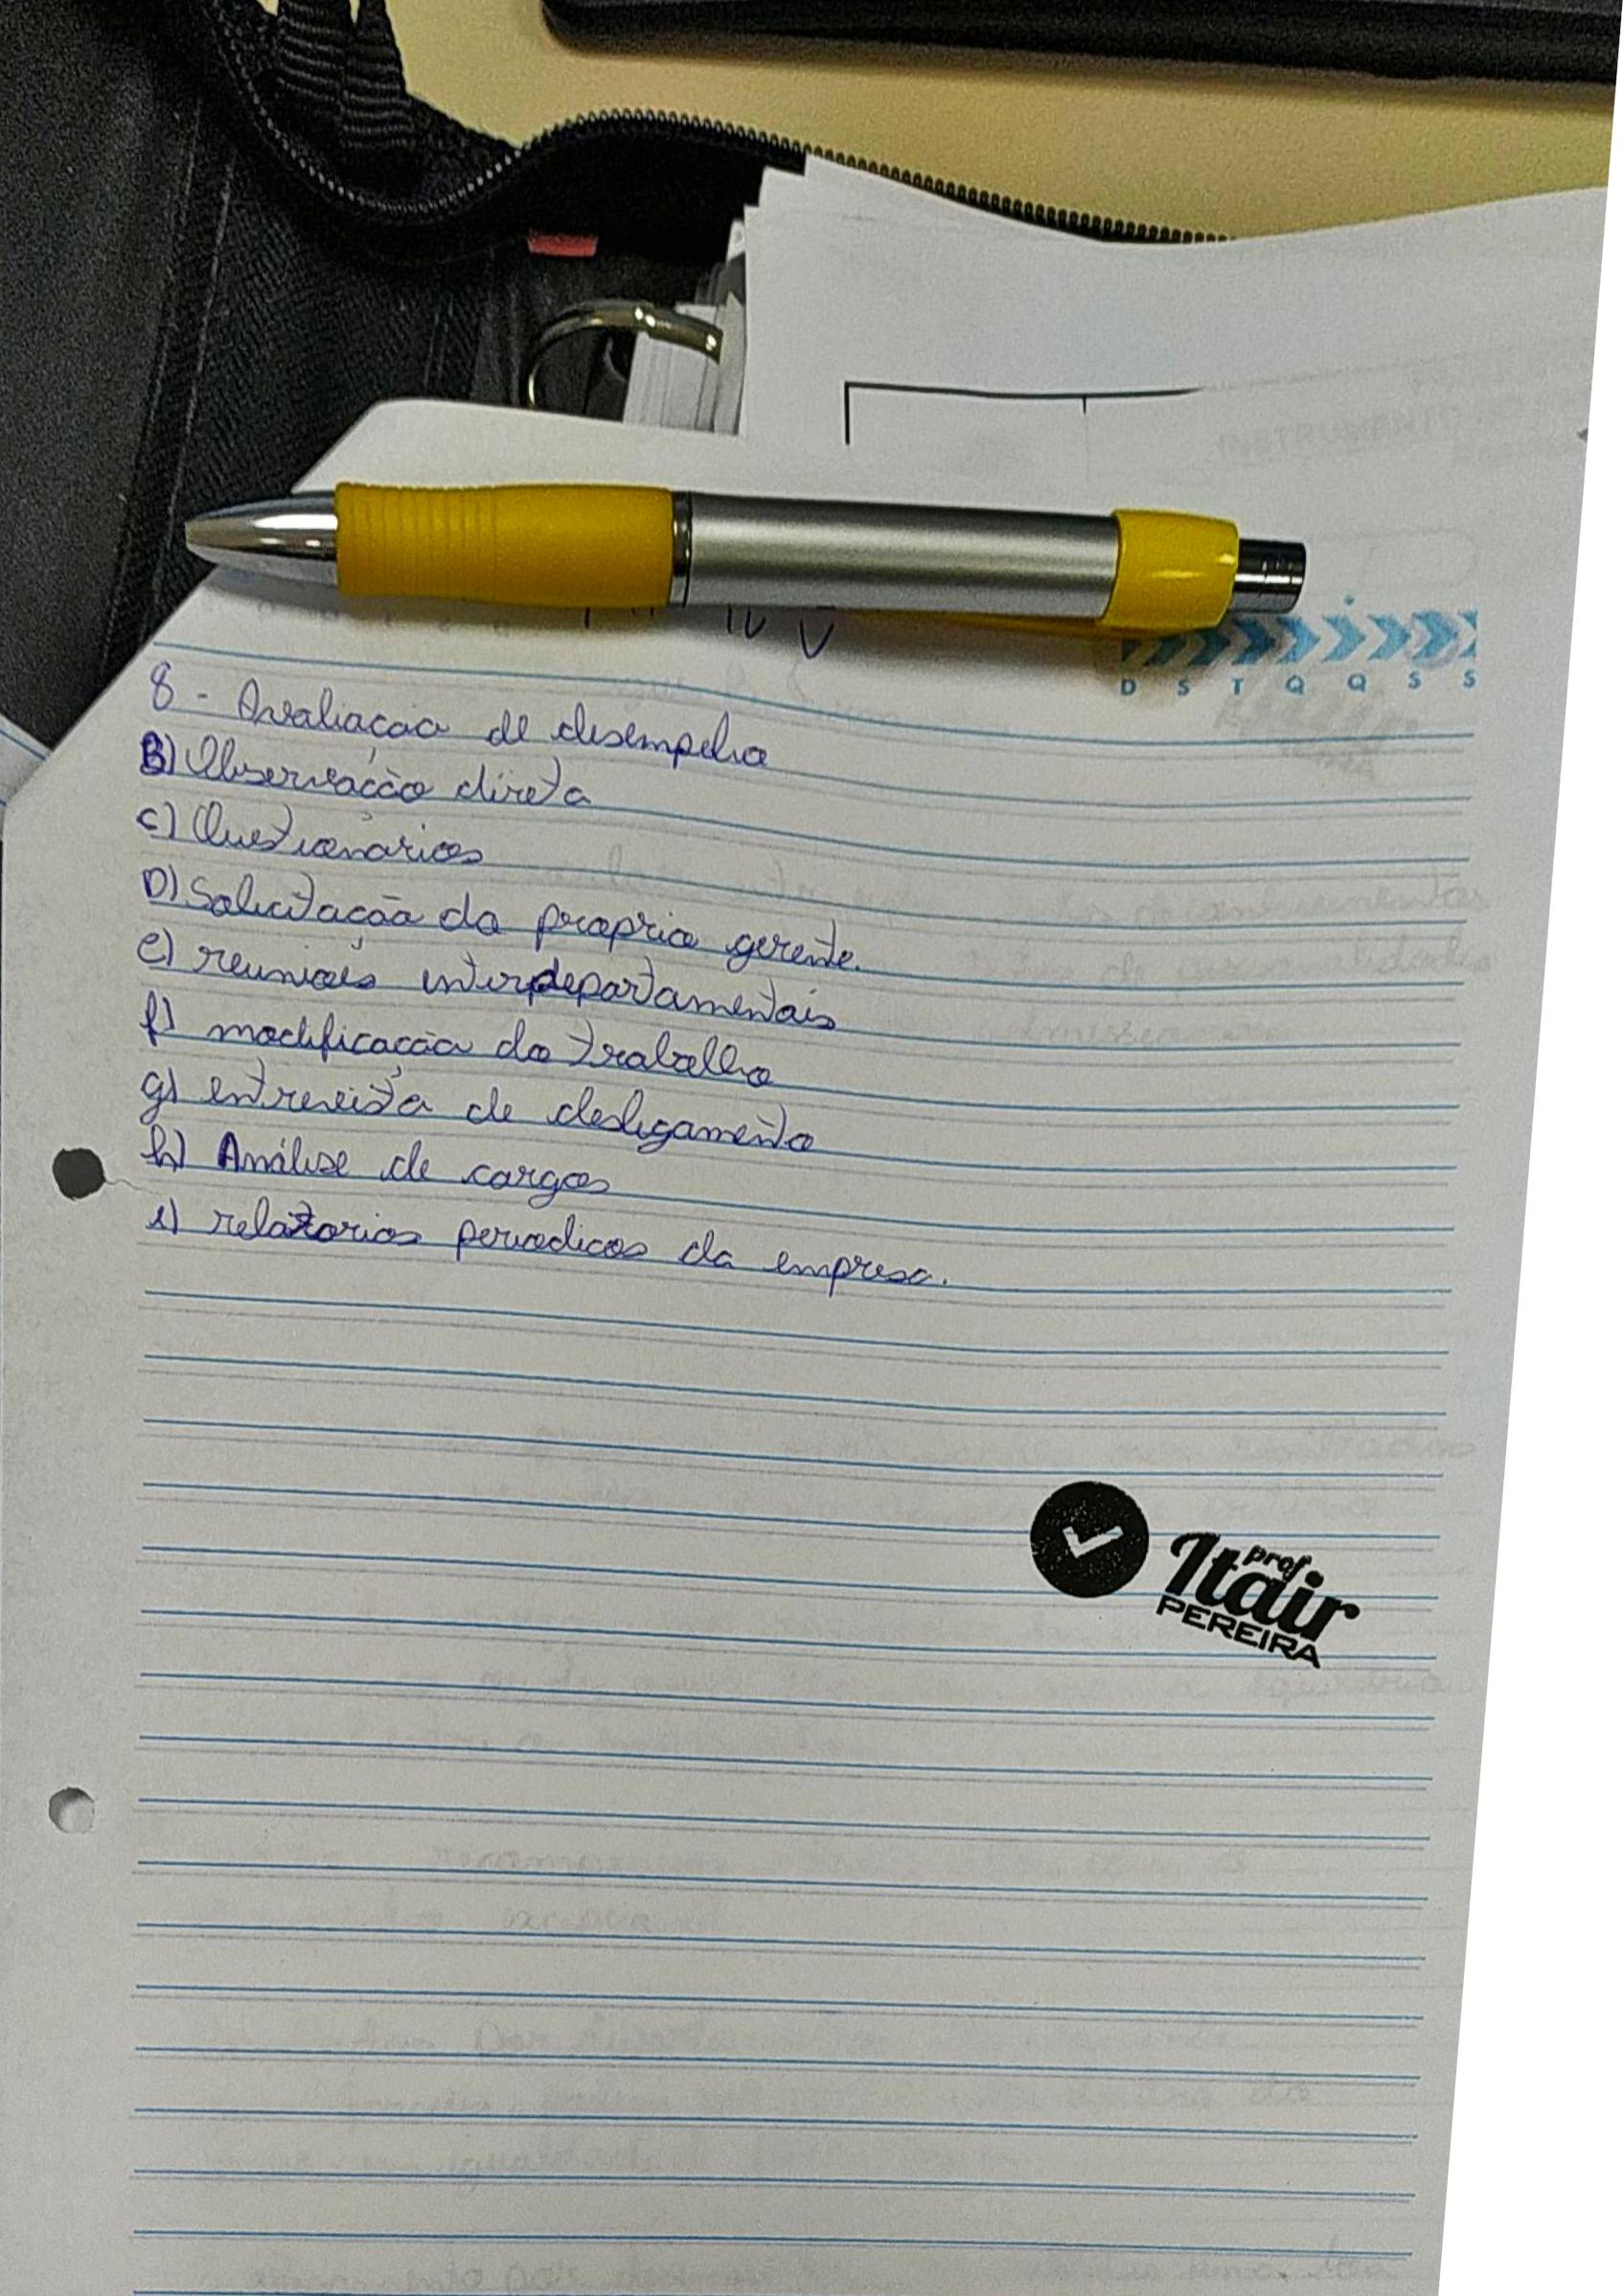 D S T Q Q S S
8 - Avaliação de desempelho
B) Observação direta
c) Questionários
D) Solicitação do proprio gerente.
e) reuniões interdepartamentais
f) modificação do trabalho
g) entrevista de desligamento
h) Análise de cargos
i) relatorios periodicos da empresa.
prof.
Itair
PEREIRA